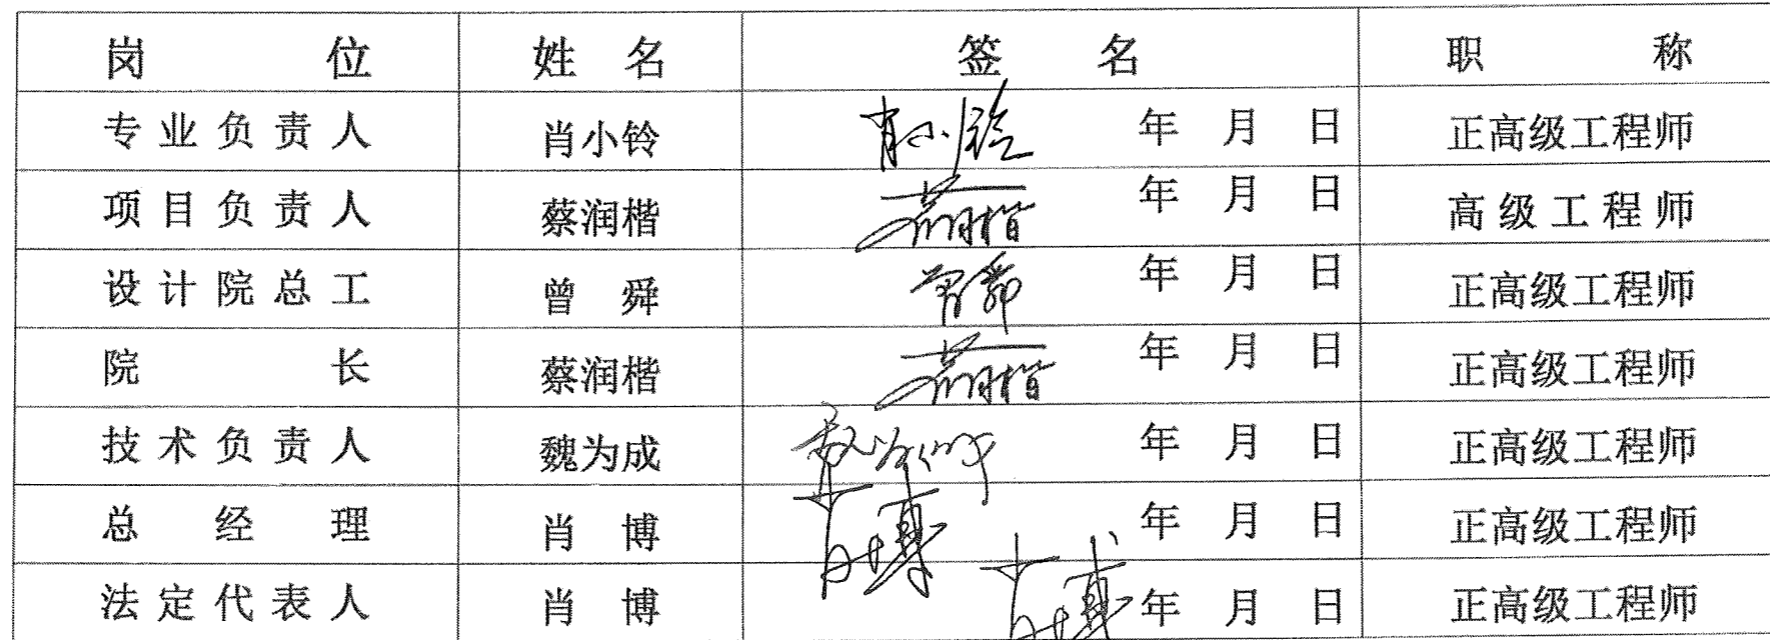 岗位 姓名 签名 职称
专业负责人 肖小铃 肖小铃 年 月 日 正高级工程师
项目负责人 蔡润楷 蔡润楷 年 月 日 高级工程师
设计院总工 曾舜 曾舜 年 月 日 正高级工程师
院长 蔡润楷 蔡润楷 年 月 日 正高级工程师
技术负责人 魏为成 年 月 日 正高级工程师
总经理 肖博 肖博 年 月 日 正高级工程师
法定代表人 肖博 肖博 年 月 日 正高级工程师